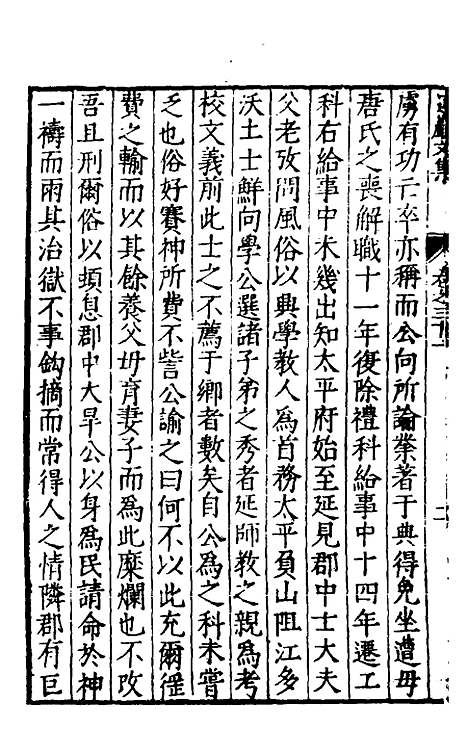 虜有功亡卒亦稱而公向所論䇿著于典得免坐遭毋
唐氏之喪解職十一年復除禮科給事中十四年遷工
科右給事中未幾出知太平府始至延見郡中士大夫
父老攷問風俗以興學教人爲首務太平負山阻江多
沃土士鮮向學公選諸子弟之秀者延師教之親爲考
校文義前此士之不薦于鄉者數矣自公爲之科未嘗
乏也俗好賽神所費不訾公諭之曰何不以此充爾徭
費之輸而以其餘養父毋育妻子而爲此糜爛也不攺
吾且刑爾俗以頓息郡中大旱公以身爲民請命於神
一禱而雨其治獄不事鈎摘而常得人之情隣郡有巨